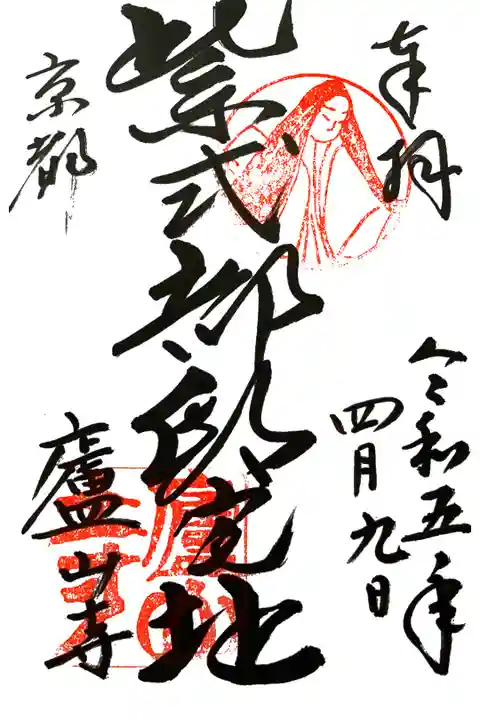 奉拝
令和五年
四月九日
紫式部邸宅地
京都
廬山寺